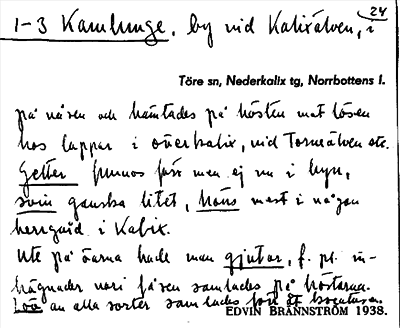 24
1-3 Kamlunge, by vid Kalixälven, i
Töre sn, Nederkalix tg, Norrbottens l.
på våren och hämtades på hösten mot lösen
hos lappar i överkalix, vid Torneälven etc.
Getter funnos förr men ej nu i byn,
svin ganska litet, höns mest i någon
herrgård i Kalix.
Ute på öarna hade man gjutar, f. pl. in-
hägnader vari fåren samlades på höstarna.
Löv av alla sorter samlades förr åt
EDVIN BRÄNNSTRÖM 1938.